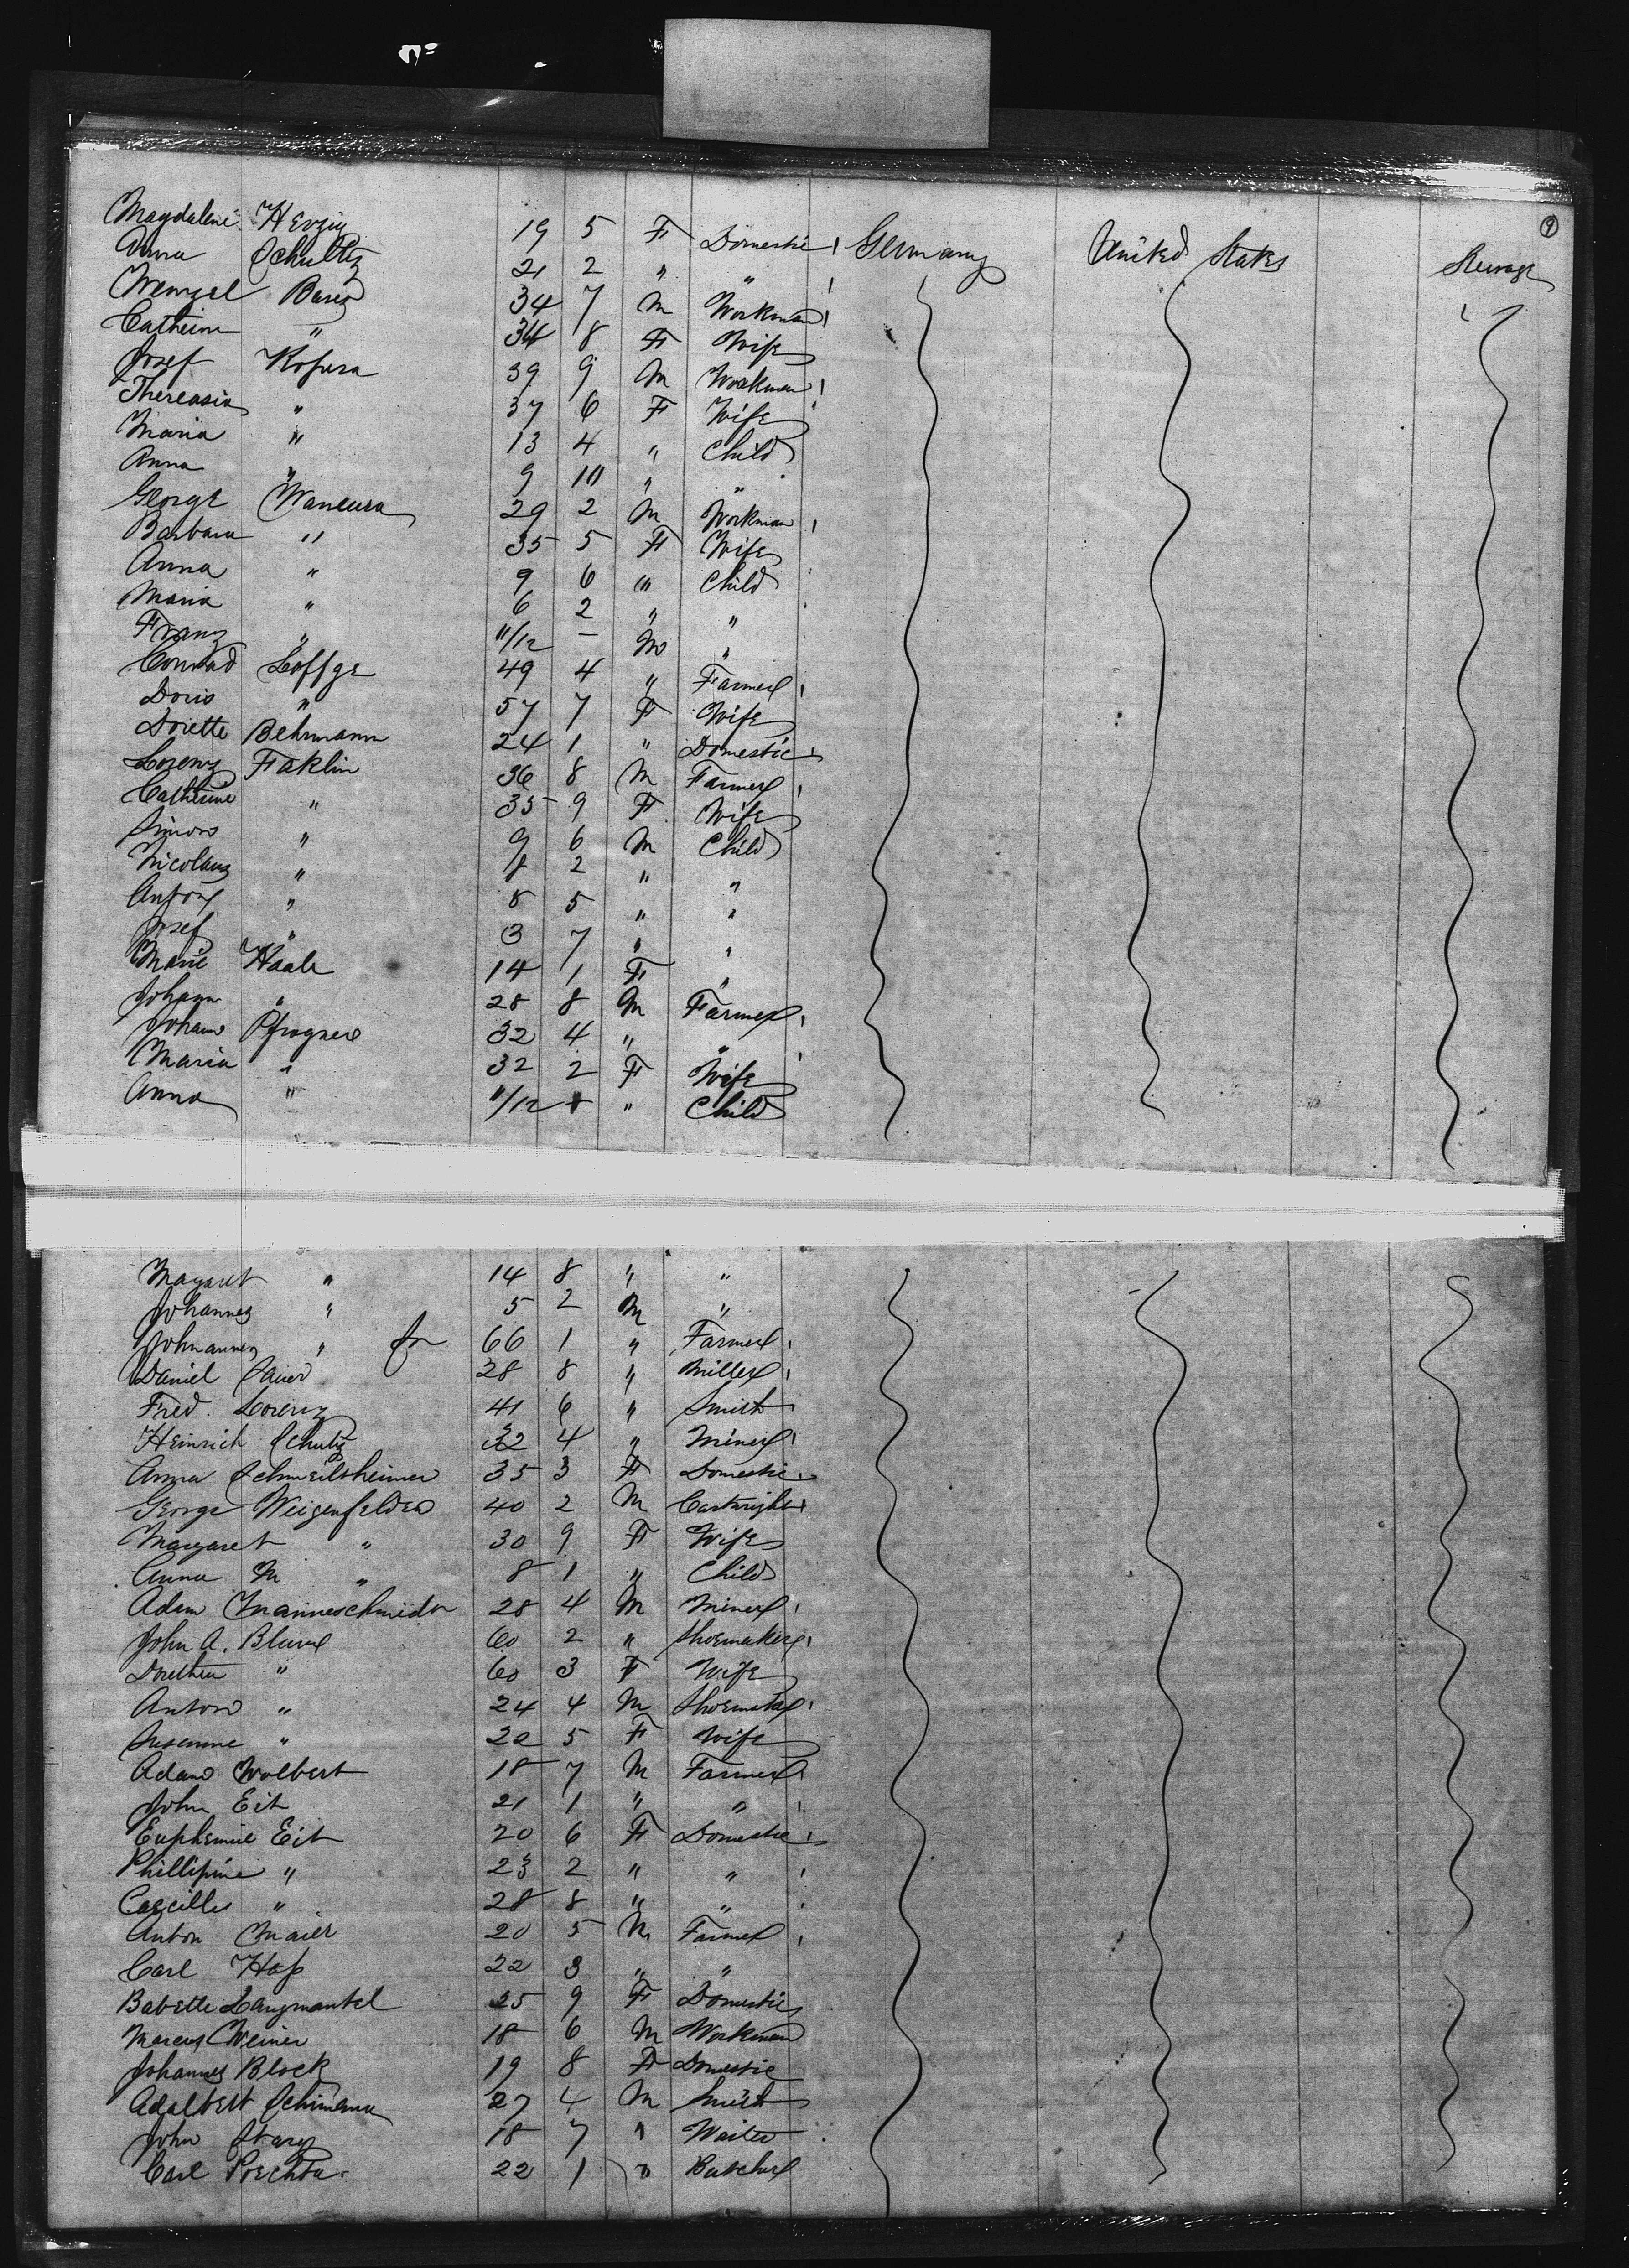 9
Magdalene Herzig 19 5 F Domestic Germany United States Steerage
Anna Schultz 21 2 " "
Wenzel Bares 34 7 M Workman
Catherine " 34 8 F Wife
Josef Kopura 39 9 M Workman
Thereasia " 37 6 F Wife
Maria " 13 4 " Child
Anna " 9 10 " "
George Wancura 29 2 M Workman
Barbara " 35 5 F Wife
Anna " 9 6 " Child
Maria " 6 2 " "
Franz " 11/12 - M "
Conrad Loffge 49 4 " Farmer
Doris " 57 7 F Wife
Doiette Behrmann 24 1 " Domestic
Lorenz Faklin 36 8 M Farmer
Catherine " 35 9 F Wife
Simon " 9 6 M Child
Nicolaus " 8 2 " "
Anton " 8 5 " "
Josef " 3 7 " "
Marie Haale 14 1 F "
Johann " 28 8 M Farmer
Johann Pfrogner 32 4 " "
Maria " 32 2 F Wife
Anna " 11/12 " Child
Magaret " 14 8 " "
Johannes " 5 2 M "
Johnannes " 66 1 " Farmer
Daniel Sauer 28 8 " Miller
Fred. Lorenz 41 6 " Smith
Heinrich Schultz 32 4 " Miner
Anna Schmeilsheimer 35 3 F Domestic
George Weigenfelder 40 2 M Cartwright
Margaret " 30 9 F Wife
Anna M " 8 1 " Child
Adam Manneschmidt 28 4 M Miner
John A. Blume 60 2 " Shoemaker
Dorethea " 60 3 F Wife
Anton " 24 4 M Shoemaker
Susanne " 22 5 F Wife
Adam Wolbert 18 7 M Farmer
John Eit 21 1 " "
Euphemie Eit 20 6 F Domestic
Phillipine " 23 2 " "
Caecille " 28 8 " "
Anton Maier 20 5 M Farmer
Carl Hop 22 3 " "
Babette Langmantel 25 9 F Domestic
Marcus Weiner 18 6 M Workman
Johannes Block 19 8 F Domestic
Adalbert Schimana 27 4 M Smith
John Stary 18 7 " Waiter
Carl Poechta 22 1 " Butcher